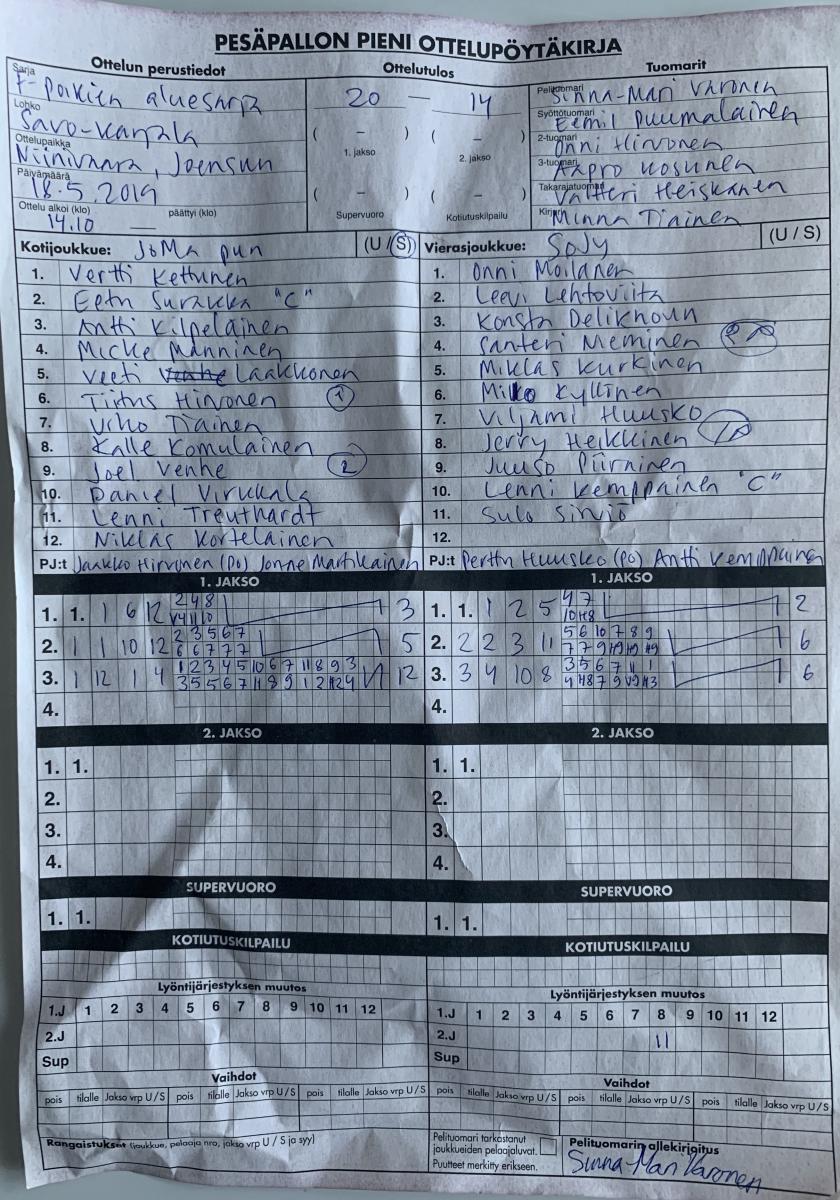 PESÄPALLON PIENI OTTELUPÖYTÄKIRJA
Ottelun perustiedot
Ottelutulos
Tuomarit
Sarja F-Poikien aluesarja
Lohko Savo-Karjala
Ottelupaikka Niinivaara, Joensuu
Päivämäärä 18.5.2019
Ottelu alkoi (klo) 14.10 päättyi (klo) —
20 — 14
( – ) ( – )
1. jakso 2. jakso
( – ) ( – )
Supervuoro Kotiutuskilpailu
Pelituomari Sinna-Mari Varonen
Syöttötuomari Eemil Puumalainen
2-tuomari Onni Hirvonen
3-tuomari Aapro Kosunen
Takarajatuomari Valtteri Heiskanen
Kirjuri Minna Tiainen
Kotijoukkue: JoMa pun (U / S)
1. Vertti Kettunen
2. Eetu Surakka "C"
3. Antti Kilpeläinen
4. Micke Manninen
5. Veeti Laakkonen
6. Tiitus Hirvonen 1
7. Urho Tiainen
8. Kalle Komulainen
9. Joel Venhe 2
10. Daniel Virkkala
11. Lenni Treuthardt
12. Niklas Kortelainen
PJ:t Jaakko Hirvonen (PJ) Jonne Martikainen
Vierasjoukkue: SoJy (U / S)
1. Onni Moilanen
2. Leevi Lehtoviita
3. Konsta Delikhoun
4. Santeri Meminen
5. Miklas Kurkinen
6. Miko Kyllinen
7. Viljami Huusko
8. Jerry Heikkinen
9. Juuso Piirninen
10. Lenni Kemppainen "C"
11. Sulo Sirviö
12.
PJ:t Perttu Huusko (PJ) Antti Kemppainen
1. JAKSO
1. 1. 1 6 12 2 4 8 3
2. 1 1 10 12 2 3 5 6 7 5
6 6 7 7 7
3. 1 12 1 4 1 2 3 4 5 10 6 7 11 8 9 3 12
4.
2. JAKSO
1. 1.
2.
3.
4.
SUPERVUORO
1. 1.
KOTIUTUSKILPAILU
Lyöntijärjestyksen muutos
1.J 1 2 3 4 5 6 7 8 9 10 11 12
2.J
Sup
Vaihdot
pois tilalle Jakso vrp U/S pois tilalle Jakso vrp U/S pois tilalle Jakso vrp U/S
Rangaistukset (joukkue, pelaaja nro, jakso vrp U / S ja syy)
1. JAKSO
1. 1. 1 2 5 4 7 2
2. 2 2 3 11 5 6 10 7 8 9 6
3. 3 4 10 8 3 5 6 7 11 1 6
4.
2. JAKSO
1. 1.
2.
3.
4.
SUPERVUORO
1. 1.
KOTIUTUSKILPAILU
Lyöntijärjestyksen muutos
1.J 1 2 3 4 5 6 7 8 9 10 11 12
2.J 11
Sup
Vaihdot
pois tilalle Jakso vrp U/S pois tilalle Jakso vrp U/S pois tilalle Jakso vrp U/S
Pelituomari tarkastanut
joukkueiden pelaajaluvat.
Puutteet merkitty erikseen.
Pelituomarin allekirjoitus
Sinna-Mari Varonen